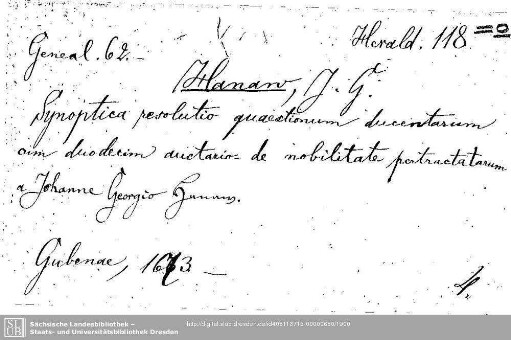 Geneal. 62.
Herald. 118
10
Hanaw, J. G.
Synoptica resolutio quaestionum ducentarum
cum duodecim auctario de nobilitate pertractatarum
a Johanne Georgio Hanaw.
Gubenae, 1673.
4.
SLUB
Sächsische Landesbibliothek –
Staats- und Universitätsbibliothek Dresden